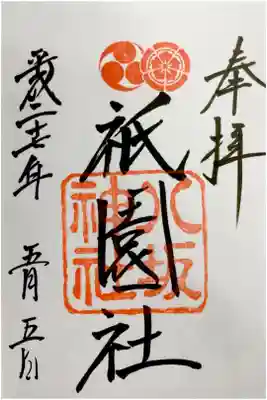 奉拝
祇園社
八坂
神社
平成二十七年
五月五日